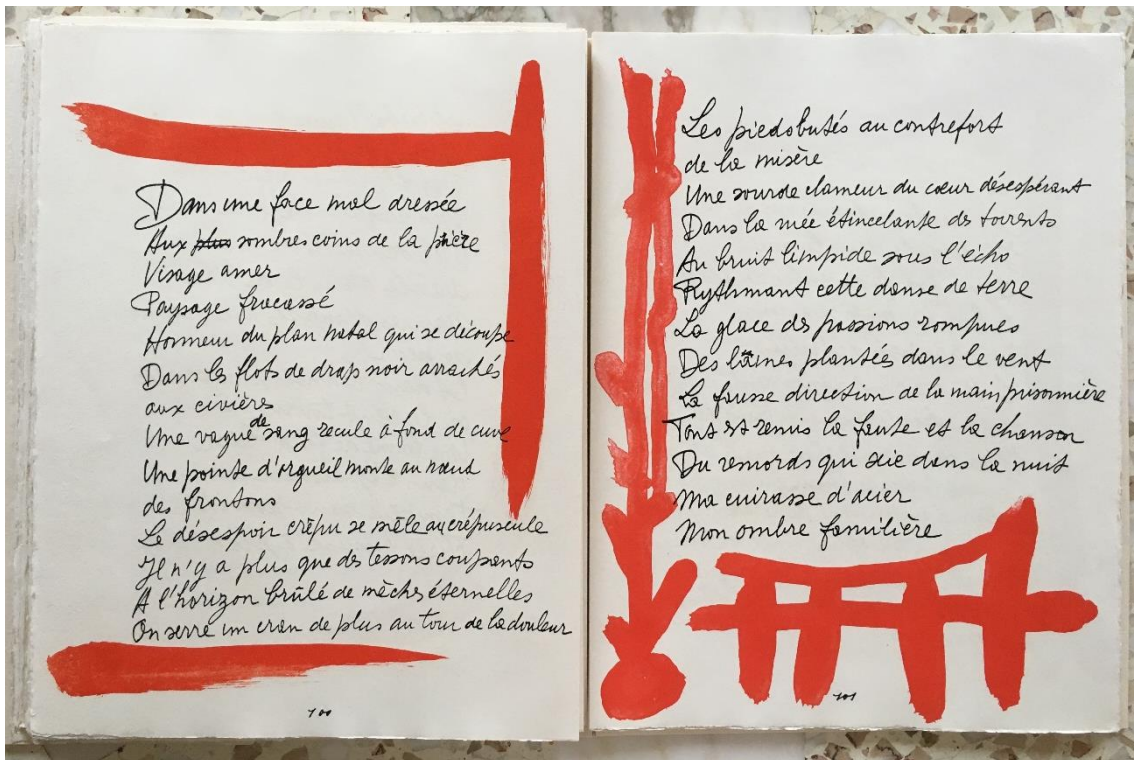 Dans une face mal dressée
Aux plus sombres coins de la prière
Visage amer
Paysage fracassé
Honneur du plan natal qui se découpe
Dans les flots de drap noir arrachés
aux civières
Une vague de sang recule à fond de cuve
Une pointe d'orgueil monte au nœud
des frontons
Le désespoir crépu se mêle au crépuscule
Il n'y a plus que des tessons coupants
A l'horizon brûlé de mèches éternelles
On serre un cran de plus au tour de la douleur
100
Les pieds butés au contrefort
de la misère
Une sourde clameur du cœur désespérant
Dans la nuée étincelante des torrents
Au bruit limpide sous l'écho
Rythmant cette danse de terre
La glace des passions rompues
Des lames plantées dans le vent
La fausse direction de la main prisonnière
Tout est remis la faute et la chanson
Du remords qui scie dans la nuit
Ma cuirasse d'acier
Mon ombre familière
101